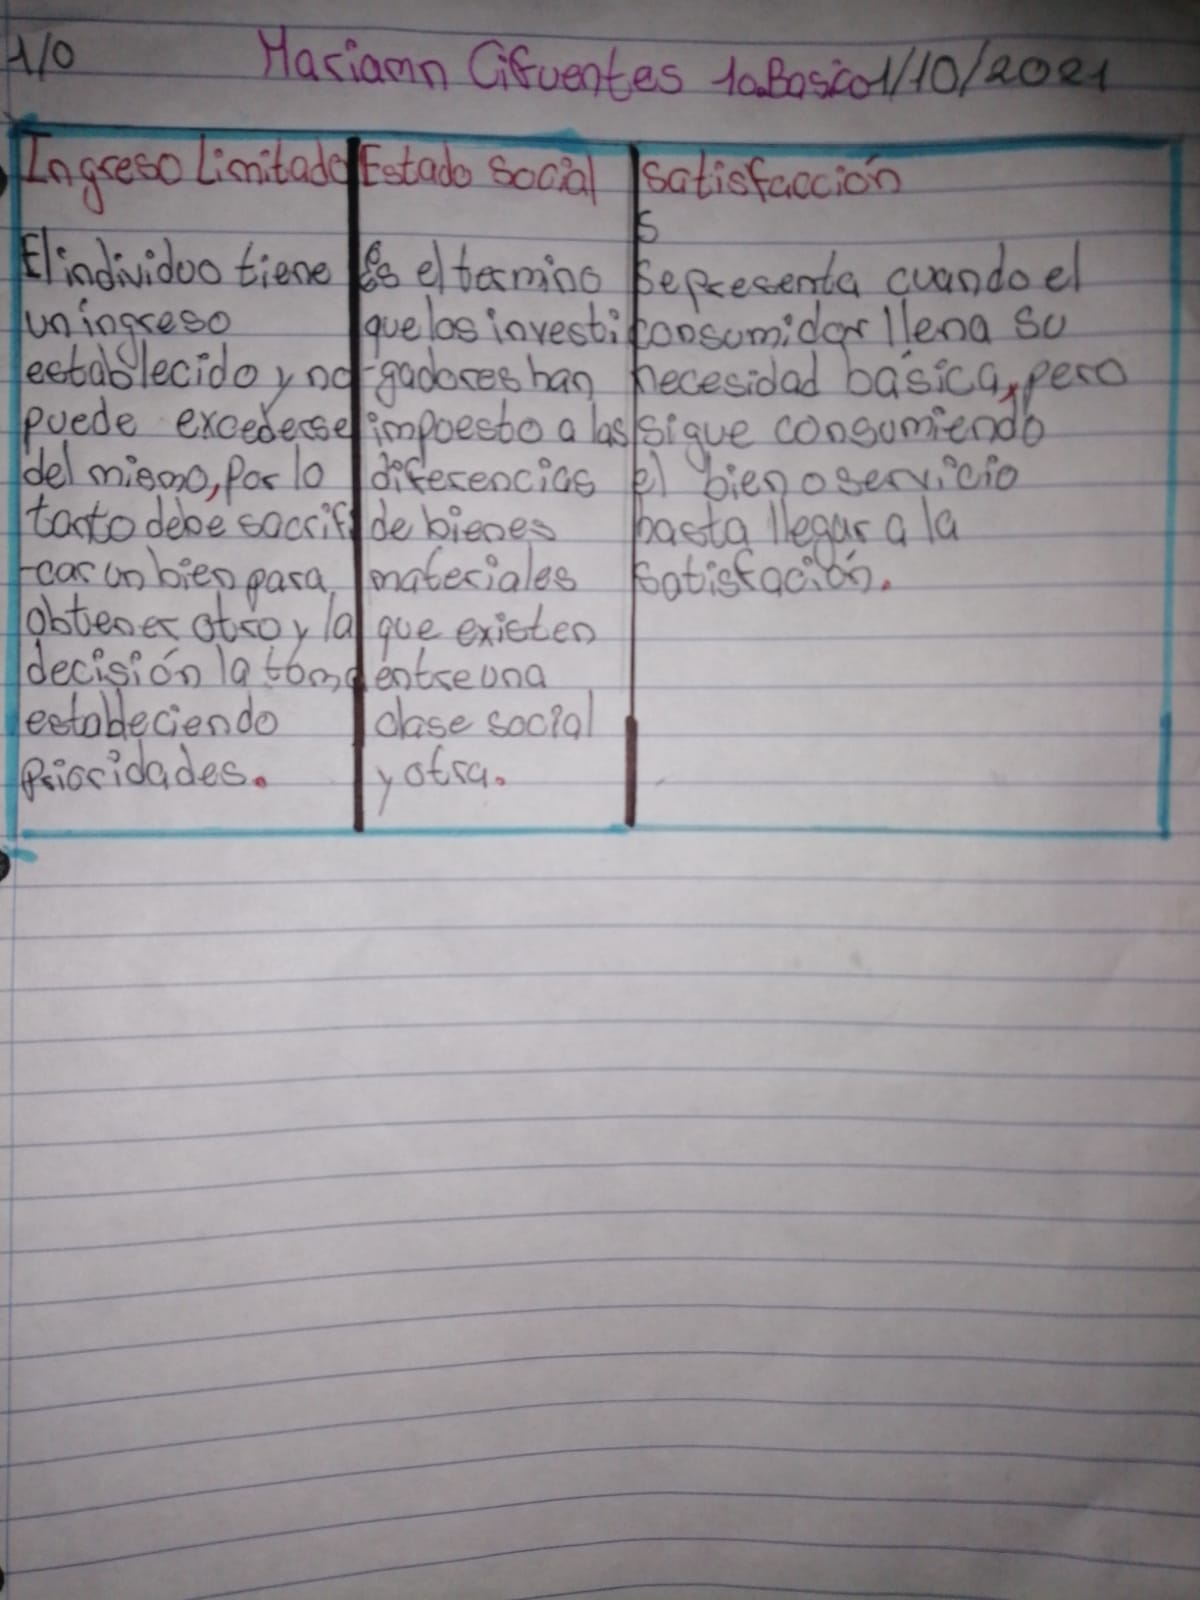 1/0 Mariann Cifuentes 1o.Basico 1/10/2021
Ingreso Limitado
El individuo tiene
un ingreso
establecido y no
puede excederse
del mismo, por lo
tanto debe sacrifi
-car un bien para
obtener otro y la
decisión la toma
estableciendo
Prioridades.
Estado Social
Es el termino
que los investi
-gadores han
impuesto a las
diferencias
de bienes
materiales
que existen
entre una
clase social
y otra.
Satisfacción
S
Se presenta cuando el
consumidor llena su
necesidad básica, pero
sigue consumiendo
el bien o servicio
hasta llegar a la
satisfación.